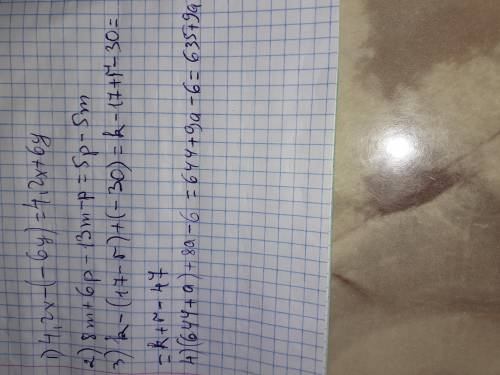 1) 4,2x-(-6y)=4,2x+6y
2) 8m+6p-13m-p=5p-5m
3) k-(17-r)+(-30)=k-17+r-30=
=k+r-47
4) (644+a)+8a-6=644+9a-6=635+9a